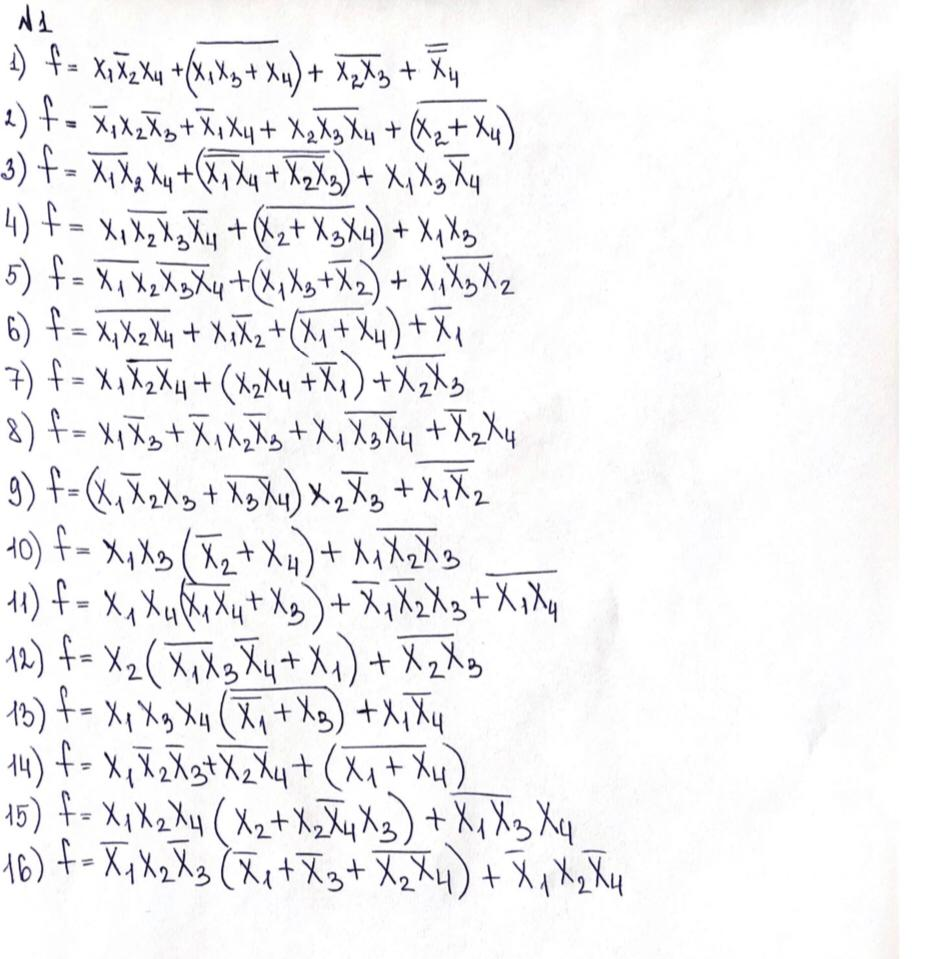 №1
1) f = x₁x̅₂x₄ + (\overline{x₁x₃ + x₄}) + \overline{x₂x₃} + \overline{\overline{x}}₄
2) f = x̅₁x₂x̅₃ + x̅₁x₄ + x₂\overline{x₃x₄} + (\overline{x₂ + x₄})
3) f = \overline{x₁x₂}x₄ + (\overline{\overline{x₁x₄} + \overline{x₂x₃}}) + x₁x₃x̅₄
4) f = x₁\overline{x₂x₃}x̅₄ + (\overline{x₂ + x₃x₄}) + x₁x₃
5) f = \overline{x₁x₂}\overline{x₃x₄} + (x₁x₃ + x̅₂) + x₁\overline{x₃x₂}
6) f = \overline{x₁x₂x₄} + x₁x̅₂ + (\overline{x₁ + x₄}) + x̅₁
7) f = x₁\overline{x₂x₄} + (x₂x₄ + x̅₁) + \overline{x₂x₃}
8) f = x₁x̅₃ + x̅₁x₂x̅₃ + x₁\overline{x₃x₄} + x̅₂x₄
9) f = (x₁x̅₂x₃ + \overline{x₃x₄})x₂x̅₃ + \overline{x₁x̅₂}
10) f = x₁x₃(x̅₂ + x₄) + x₁\overline{x₂x₃}
11) f = x₁x₄(\overline{x₁x₄} + x₃) + x̅₁x̅₂x₃ + \overline{x₁x₄}
12) f = x₂(\overline{x₁x₃}x̅₄ + x₁) + \overline{x₂x₃}
13) f = x₁x₃x₄(\overline{x̅₁ + x₃}) + x₁x̅₄
14) f = x₁x̅₂x̅₃ + \overline{x₂x₄} + (\overline{x₁ + x₄})
15) f = x₁x₂x₄(x₂ + x₂x̅₄x₃) + \overline{x₁x₃}x₄
16) f = x̅₁x₂x̅₃(x̅₁ + x̅₃ + \overline{x₂x₄}) + x̅₁x₂x̅₄